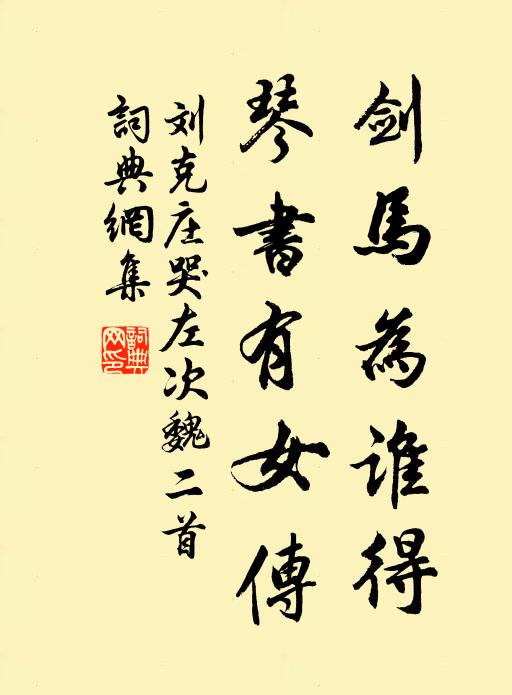 剑馬為谁得
琴書有女傳
刘克庄哭左次魏二首
詞典網集
詞典
网印